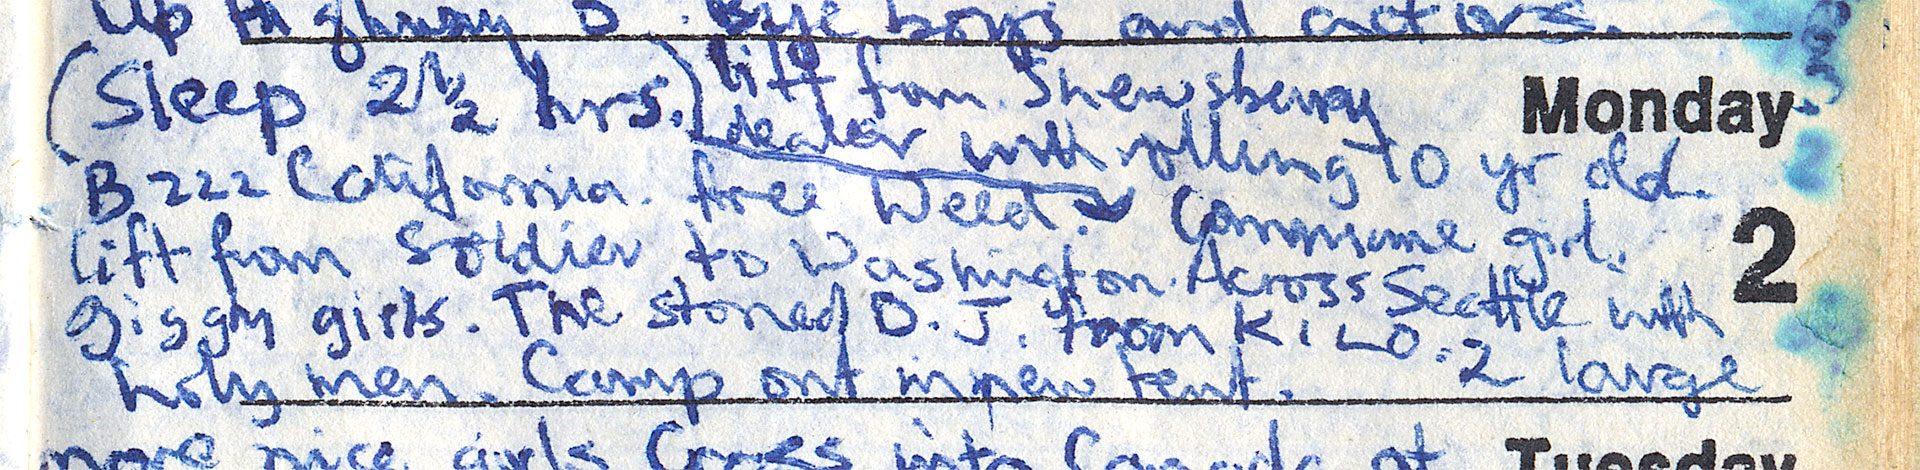 up Highway 5. Bye boys and actors.
(Sleep 2½ hrs.) lift from Shrewsberry
Monday
dealer with rolling 10 yr old.
B222 California. free Weed.
girl.
2
lift from Soldier to Washington. Across Seattle with
giggy girls. The stoned D.J. from KILO. 2 large
holy men. Camp out in new tent.
more nice girls Cross into Canada at
Tuesday